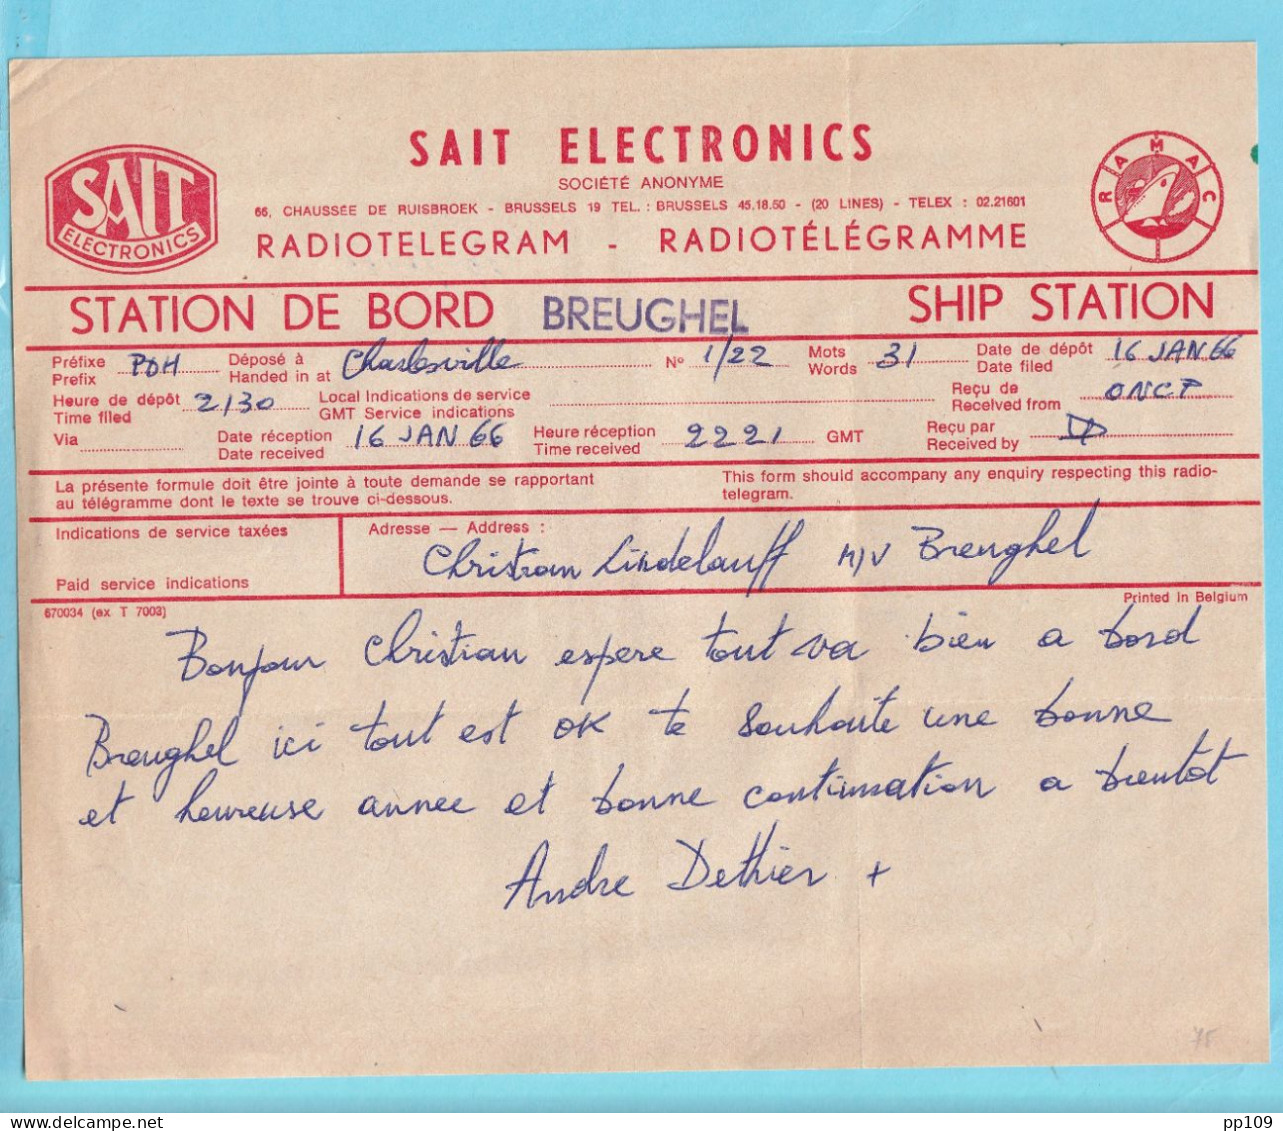 SAIT ELECTRONICS
SOCIÉTÉ ANONYME
66, CHAUSSÉE DE RUISBROEK - BRUSSELS 19 TEL. : BRUSSELS 45.18.50 - (20 LINES) - TELEX : 02.21601
RADIOTELEGRAM - RADIOTÉLÉGRAMME
SAIT
ELECTRONICS
RAMAC
STATION DE BORD BREUGHEL SHIP STATION
Préfixe Déposé à Charlesville N° 1/22 Mots 31 Date de dépôt 16 JAN 66
Prefix PDH Handed in at Words Date filed
Heure de dépôt 2130 Local Indications de service Reçu de ONCP
Time filed GMT Service indications Received from
Via Date réception 16 JAN 66 Heure réception 2221 GMT Reçu par
Date received Time received Received by
La présente formule doit être jointe à toute demande se rapportant
au télégramme dont le texte se trouve ci-dessous.
This form should accompany any enquiry respecting this radio-
telegram.
Indications de service taxées Adresse — Address :
Christian Lindelauff M/V Breughel
Paid service indications
670034 (ex T 7003) Printed in Belgium
Bonjour Christian espere tout va bien a bord
Breughel ici tout est OK te souhaite une bonne
et heureuse annee et bonne continuation a bientot
Andre Dethier +
75
www.delcampe.net pp109